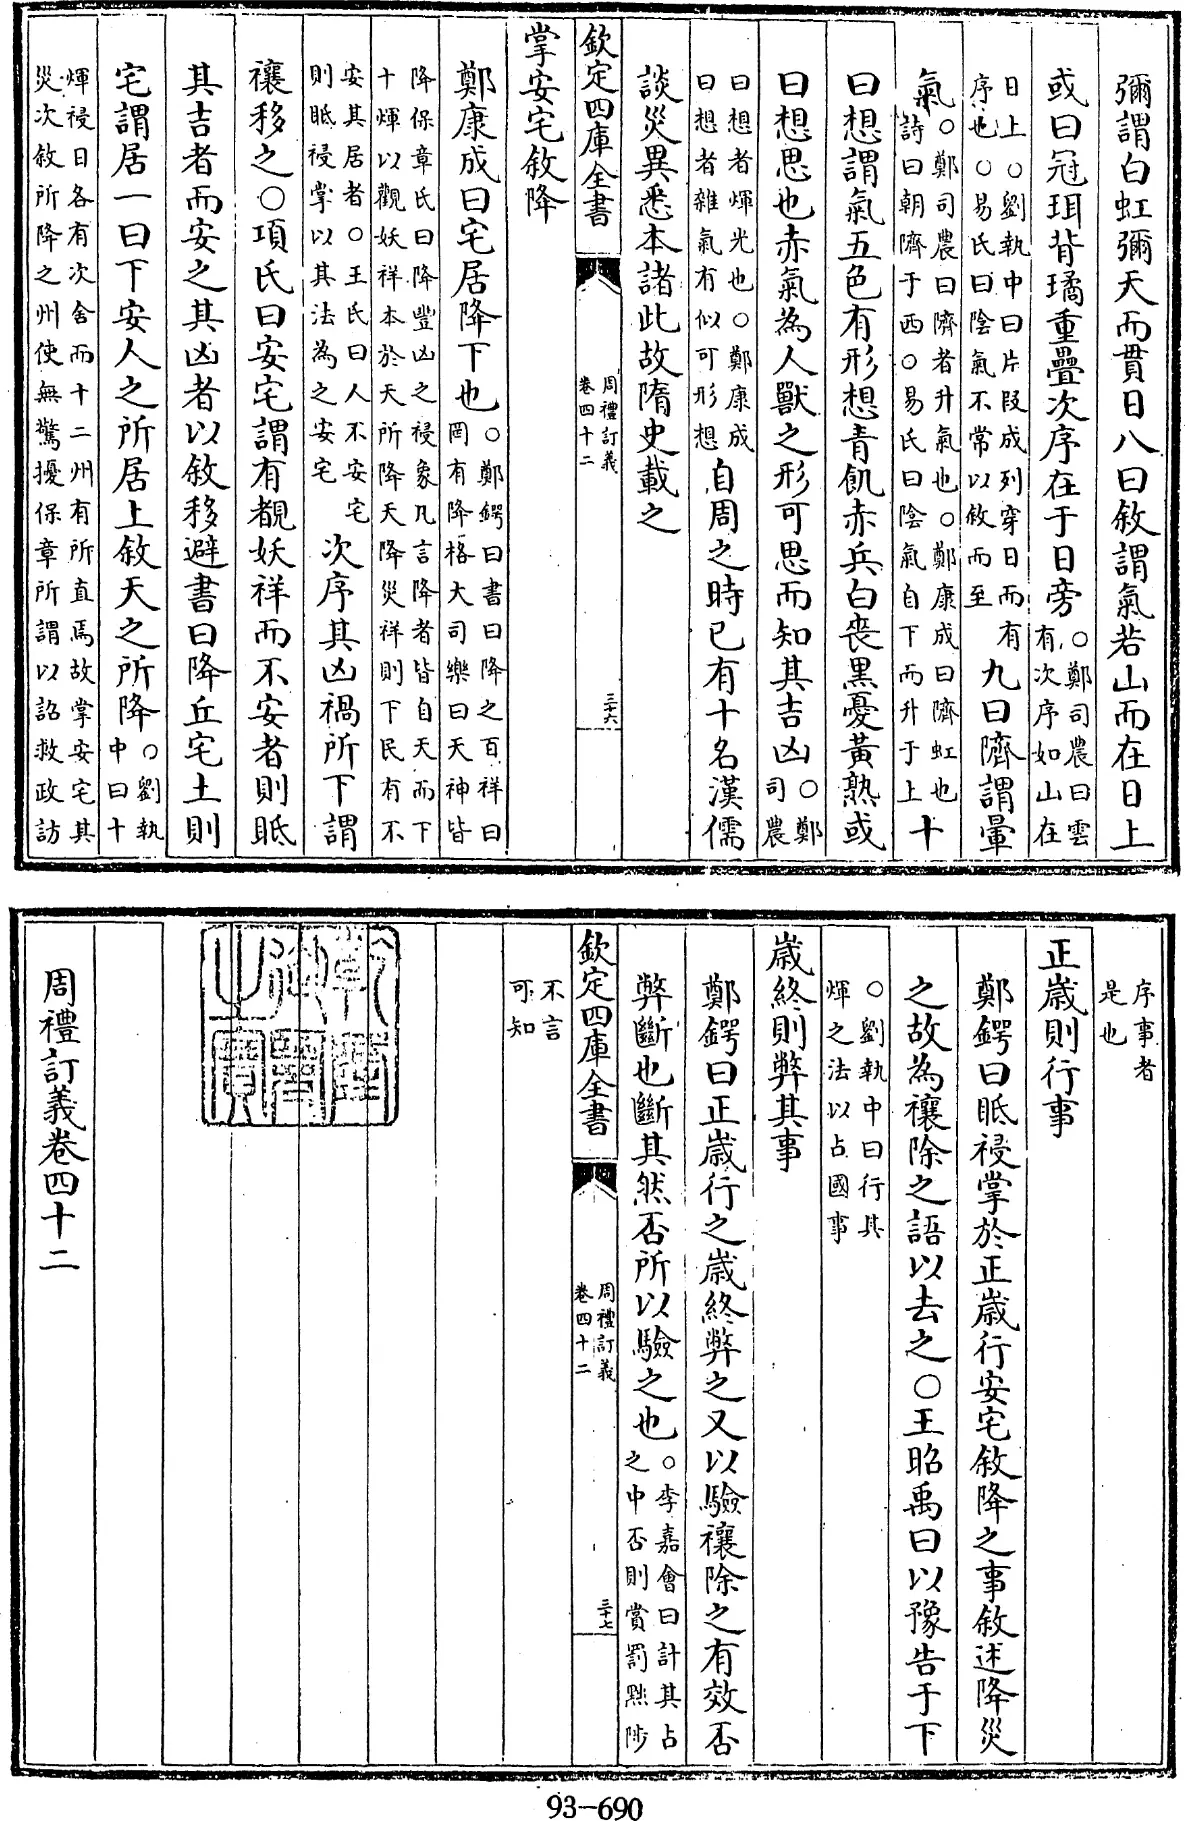 彌謂白虹彌天而貫日八曰敘謂氣若山而在日上
或曰冠珥背璚重疊次序在于日旁〇鄭司農曰雲有次序如山在
日上〇劉執中曰片段成列穿日而有序也〇易氏曰陰氣不常以敘而至九曰隮謂暈
氣〇鄭司農曰隮者升氣也〇鄭康成曰隮虹也詩曰朝隮于西〇易氏曰陰氣自下而升于上十
曰想謂氣五色有形想青飢赤兵白喪黑憂黃熟或
曰想思也赤氣為人獸之形可思而知其吉凶〇鄭司農
曰想者煇光也〇鄭康成曰想者雜氣有似可形想自周之時已有十名漢儒
談災異悉本諸此故隋史載之
欽定四庫全書
周禮訂義卷四十二
三十六
掌安宅敘降
鄭康成曰宅居降下也〇鄭鍔曰書曰降之百祥曰罔有降格大司樂曰天神皆
降保章氏曰降豐凶之祲象凡言降者皆自天而下十煇以觀妖祥本於天所降天降災祥則下民有不
安其居者〇王氏曰人不安宅則眡祲掌以其法為之安宅次序其凶禍所下謂
禳移之〇項氏曰安宅謂有覩妖祥而不安者則眡
其吉者而安之其凶者以敘移避書曰降丘宅土則
宅謂居一曰下安人之所居上敘天之所降〇劉執中曰十
煇祲日各有次舍而十二州有所直焉故掌安宅其災次敘所降之州使無驚擾保章所謂以詔救政訪
序事者是也
正歲則行事
鄭鍔曰眡祲掌於正歲行安宅敘降之事敘述降災
之故為禳除之語以去之〇王昭禹曰以豫告于下
〇劉執中曰行其煇之法以占國事
歲終則弊其事
鄭鍔曰正歲行之歲終弊之又以驗禳除之有效否
弊斷也斷其然否所以驗之也〇李嘉會曰計其占之中否則賞罰黜陟
欽定四庫全書
周禮訂義卷四十二
三十七
不言可知
乾隆御覽之寶
周禮訂義卷四十二
93-690